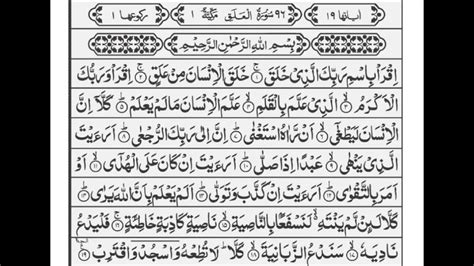 اٰیاتها ۱۹ ۹۶ سُوْرَةُ الْعَلَقِ مَكِّیَّةٌ ۱ رکوعها ۱
بِسْمِ اللّٰهِ الرَّحْمٰنِ الرَّحِیْمِ
اِقْرَاْ بِاسْمِ رَبِّكَ الَّذِیْ خَلَقَ ۝۱ خَلَقَ الْاِنْسَانَ مِنْ عَلَقٍ ۝۲ اِقْرَاْ وَ رَبُّكَ
الْاَكْرَمُ ۝۳ الَّذِیْ عَلَّمَ بِالْقَلَمِ ۝۴ عَلَّمَ الْاِنْسَانَ مَا لَمْ یَعْلَمْ ۝۵ كَلَّاۤ اِنَّ
الْاِنْسَانَ لَیَطْغٰۤی ۝۶ اَنْ رَّاٰهُ اسْتَغْنٰی ۝۷ اِنَّ اِلٰی رَبِّكَ الرُّجْعٰی ۝۸ اَرَءَیْتَ
الَّذِیْ یَنْهٰی ۝۹ عَبْدًا اِذَا صَلّٰی ۝۱۰ اَرَءَیْتَ اِنْ كَانَ عَلَی الْهُدٰۤی ۝۱۱ اَوْ
اَمَرَ بِالتَّقْوٰی ۝۱۲ اَرَءَیْتَ اِنْ كَذَّبَ وَ تَوَلّٰی ۝۱۳ اَلَمْ یَعْلَمْ بِاَنَّ اللّٰهَ یَرٰی ۝۱۴
كَلَّا لَىِٕنْ لَّمْ یَنْتَهِ لَنَسْفَعًۢا بِالنَّاصِیَةِ ۝۱۵ نَاصِیَةٍ كَاذِبَةٍ خَاطِئَةٍ ۝۱۶ فَلْیَدْعُ
نَادِیَهٗ ۝۱۷ سَنَدْعُ الزَّبَانِیَةَ ۝۱۸ كَلَّا لَا تُطِعْهُ وَ اسْجُدْ وَ اقْتَرِبْ ۝۱۹